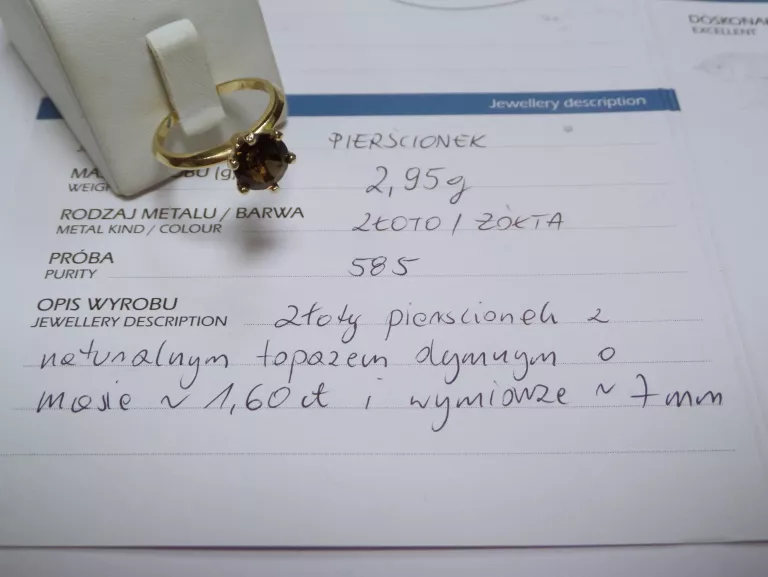 DOSKONA
EXCELLENT
Jewellery description
PIERŚCIONEK
MA OBU (g)
WEIG
2,95g
RODZAJ METALU / BARWA
METAL KIND / COLOUR
ZŁOTO / ŻÓŁTA
PRÓBA
PURITY
585
OPIS WYROBU
JEWELLERY DESCRIPTION
złoty pierścionek z
naturalnym topazem dymnym o
masie ~ 1,60 ct i wymiarze ~ 7mm